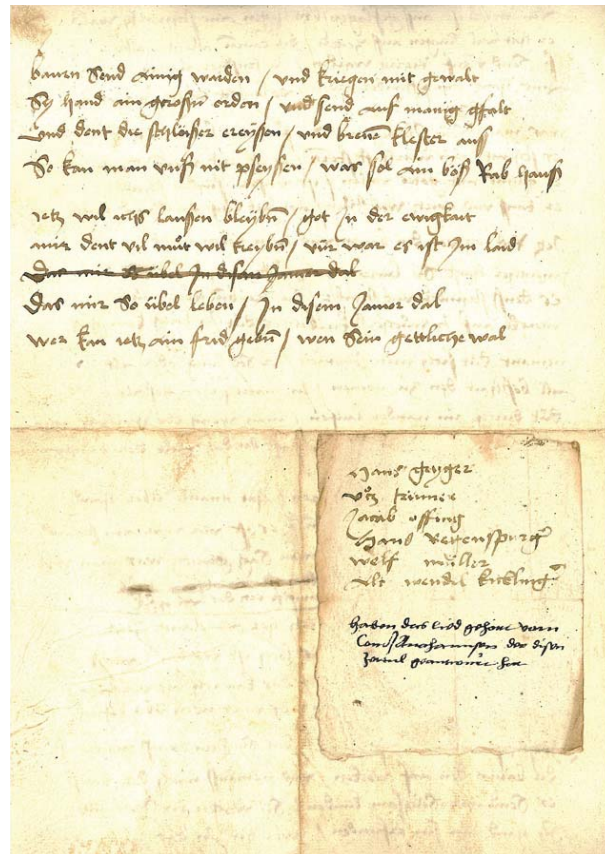 bauren Send ainig warden / und kriegen mit gewalt
Sy hand ain grossen orden / und send auf manig gstalt
Und dent die schlösser ereyssen / und brenen klester aus
So kan man unß nit pscyssen / was sol ain böß Rab hauss
ietz wil ichs laussen bleyben / got in der ewigkait
mir dent vil muot wil treyben / vür war es ist im laid
Das mir so übel In disem Jamer dal
Das mir So übel leben / In disem Jamer dal
wer kan ietz ain frid geben / wen Sein gettliche wal
Hans gryger
utz trimer
Jacob offing
Hans Regenspurger
wolf müller
Alt wendel kickling
haben das lied gehört vom
der disen
zetl geantwurt hat